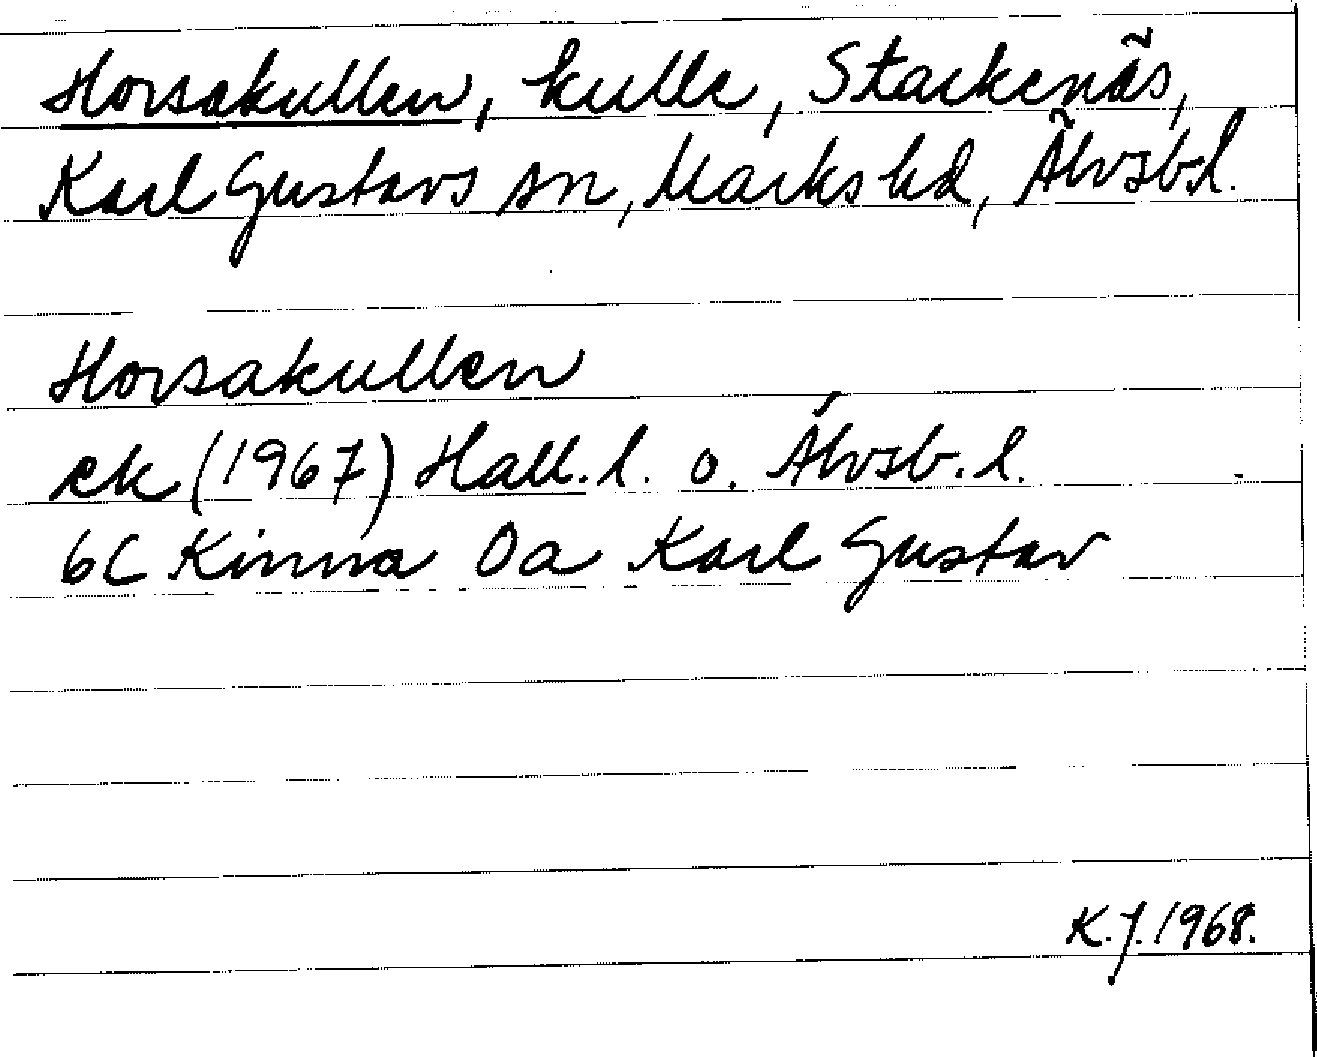 Horsakullen, kulle, Starkenäs,
Karl Gustavs sn, Marks hd, Älvsb.l.
Horsakullen
ek (1967) Hall.l. o. Älvsb.l.
6C Kinna 0a Karl Gustav
K.J. 1968.